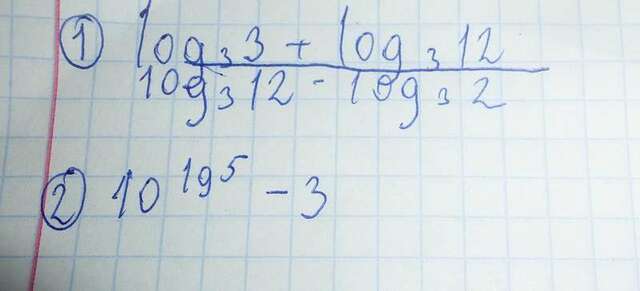 ① log₃3 + log₃12
log₃12 - log₃2
② 10^lg5 - 3